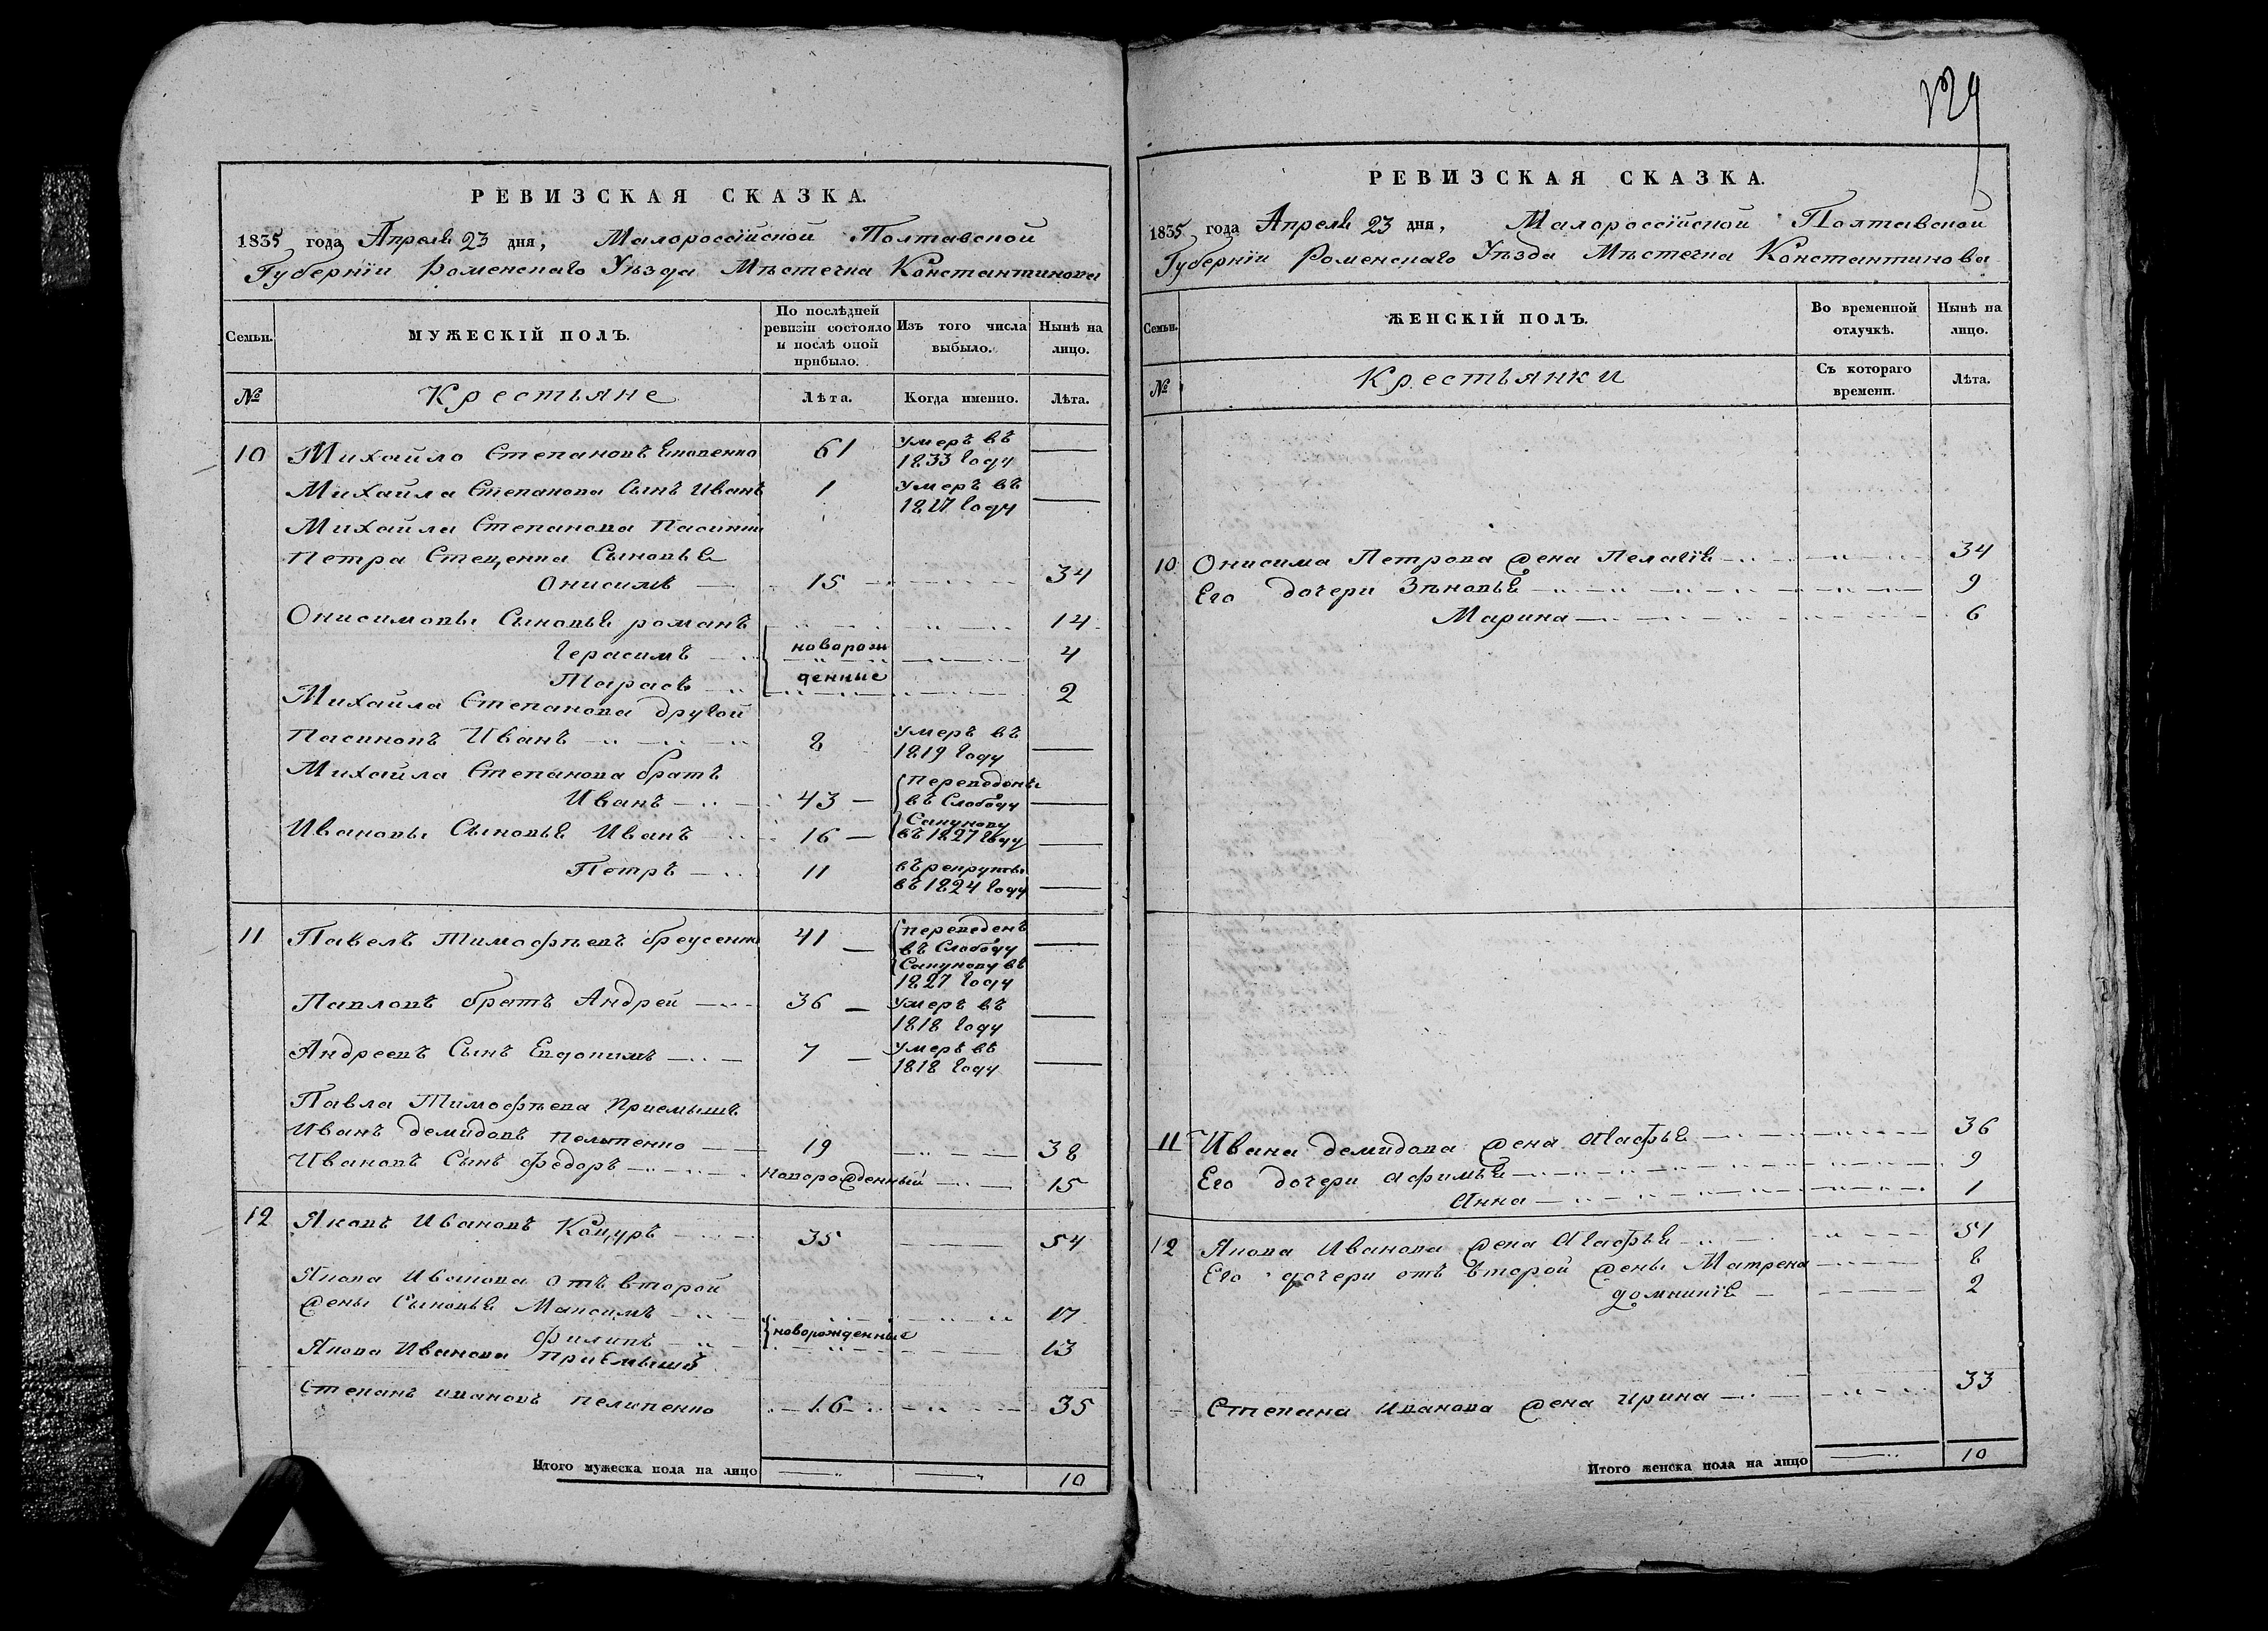 129
РЕВИЗСКАЯ СКАЗКА.
1835 года Апреля 23 дня, Малороссійской Полтавской
Губерніи Роменскаго Уѣзда Мѣстечка Константинова
Семьи. МУЖЕСКІЙ ПОЛЪ. По послѣдней ревизіи состояло и послѣ оной прибыло. Изъ того числа выбыло. Нынѣ на лицо.
№ Крестьяне Лѣта. Когда именно. Лѣта.
10 Михайло Степановъ 61 умеръ въ 1833 году —
Михайла Степанова Сынъ Иванъ 1 умеръ въ 1817 году —
Михайла Степанова Пасинки
Петра Стеценка Сыновья
Онисимъ 15 34
Онисимовы Сыновья романъ 14
Герасимъ новорож 4
Тарасъ денные 2
Михайла Степанова другой
Пасинокъ Иванъ 8 умеръ въ 1819 году —
Михайла Степанова братъ
Иванъ 43 — переведены въ Слободу —
Ивановы Сыновья Иванъ 16 — въ 1827 году —
Петръ 11 въ рекруты въ 1824 году —
11 Павелъ Тимофѣевъ бреусенко 41 — переведенъ въ Слободу 1827 году —
Павловъ братъ Андрей 36 — умеръ въ 1818 году —
Андреевъ Сынъ Евдокимъ 7 — умеръ въ 1818 году —
Павла Тимофѣева Приемышъ
Иванъ демидовъ пелипенко 19 38
Ивановъ Сынъ федоръ новорожденный 15
12 Яковъ Ивановъ Коцуръ 35 54
Якова Иванова отъ второй
жены Сыновья Максимъ 17
филипъ новорожденные 13
Якова Иванова приемышъ
Степанъ ивановъ пелипенко 16 35
Итого мужеска пола на лицо 10
РЕВИЗСКАЯ СКАЗКА.
1835 года Апреля 23 дня, Малороссійской Полтавской
Губерніи Роменскаго Уѣзда Мѣстечка Константинова
Семьи. ЖЕНСКІЙ ПОЛЪ. Во временной отлучкѣ. Нынѣ на лицо.
№ Крестьянки Съ котораго времени. Лѣта.
10 Онисима Петрова жена Пелагія 34
Его дочери Зѣновья 9
Марина 6
11 Ивана демидова жена Агафья 36
Его дочери афимья 9
Анна 1
12 Якова Иванова жена Агафья 51
Его дочери отъ второй жены Матрена 8
домникія 2
Степана иванова жена ирина 33
Итого женска пола на лицо 10